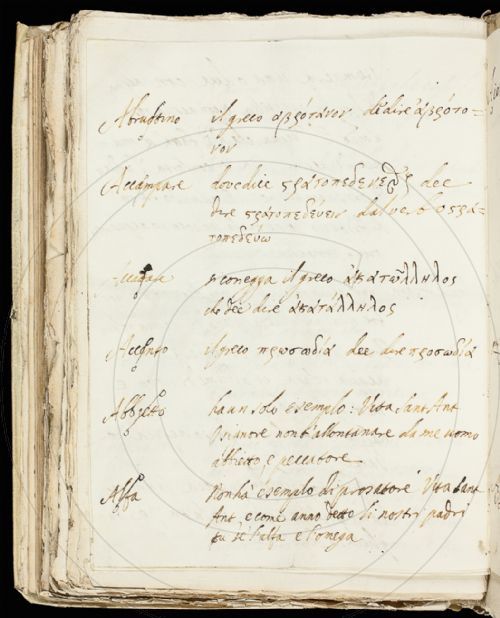 Abruotino il greco ἀβρότανον dee dire ἀβρότο=
νον
Accampare dove dice στρατοπεδενε dee
dire στρατοπεδεύειν dal verbo στρα=
τοπεδεύω
si corregga il greco ἀκατώλληλος
che dee dire ἀκατάλληλος
Accento il greco πρωσωδία dee dire προσωδία
Abbietto ha un solo esempio: Vita Sant Ant
Signore non t'allontanare da me uomo
abbietto, e peccatore
Alfa Non ha esempio di prosatore Vita Sant
Ant. e come anno dette li nostri padri
tu sè l'alfa e l'omega